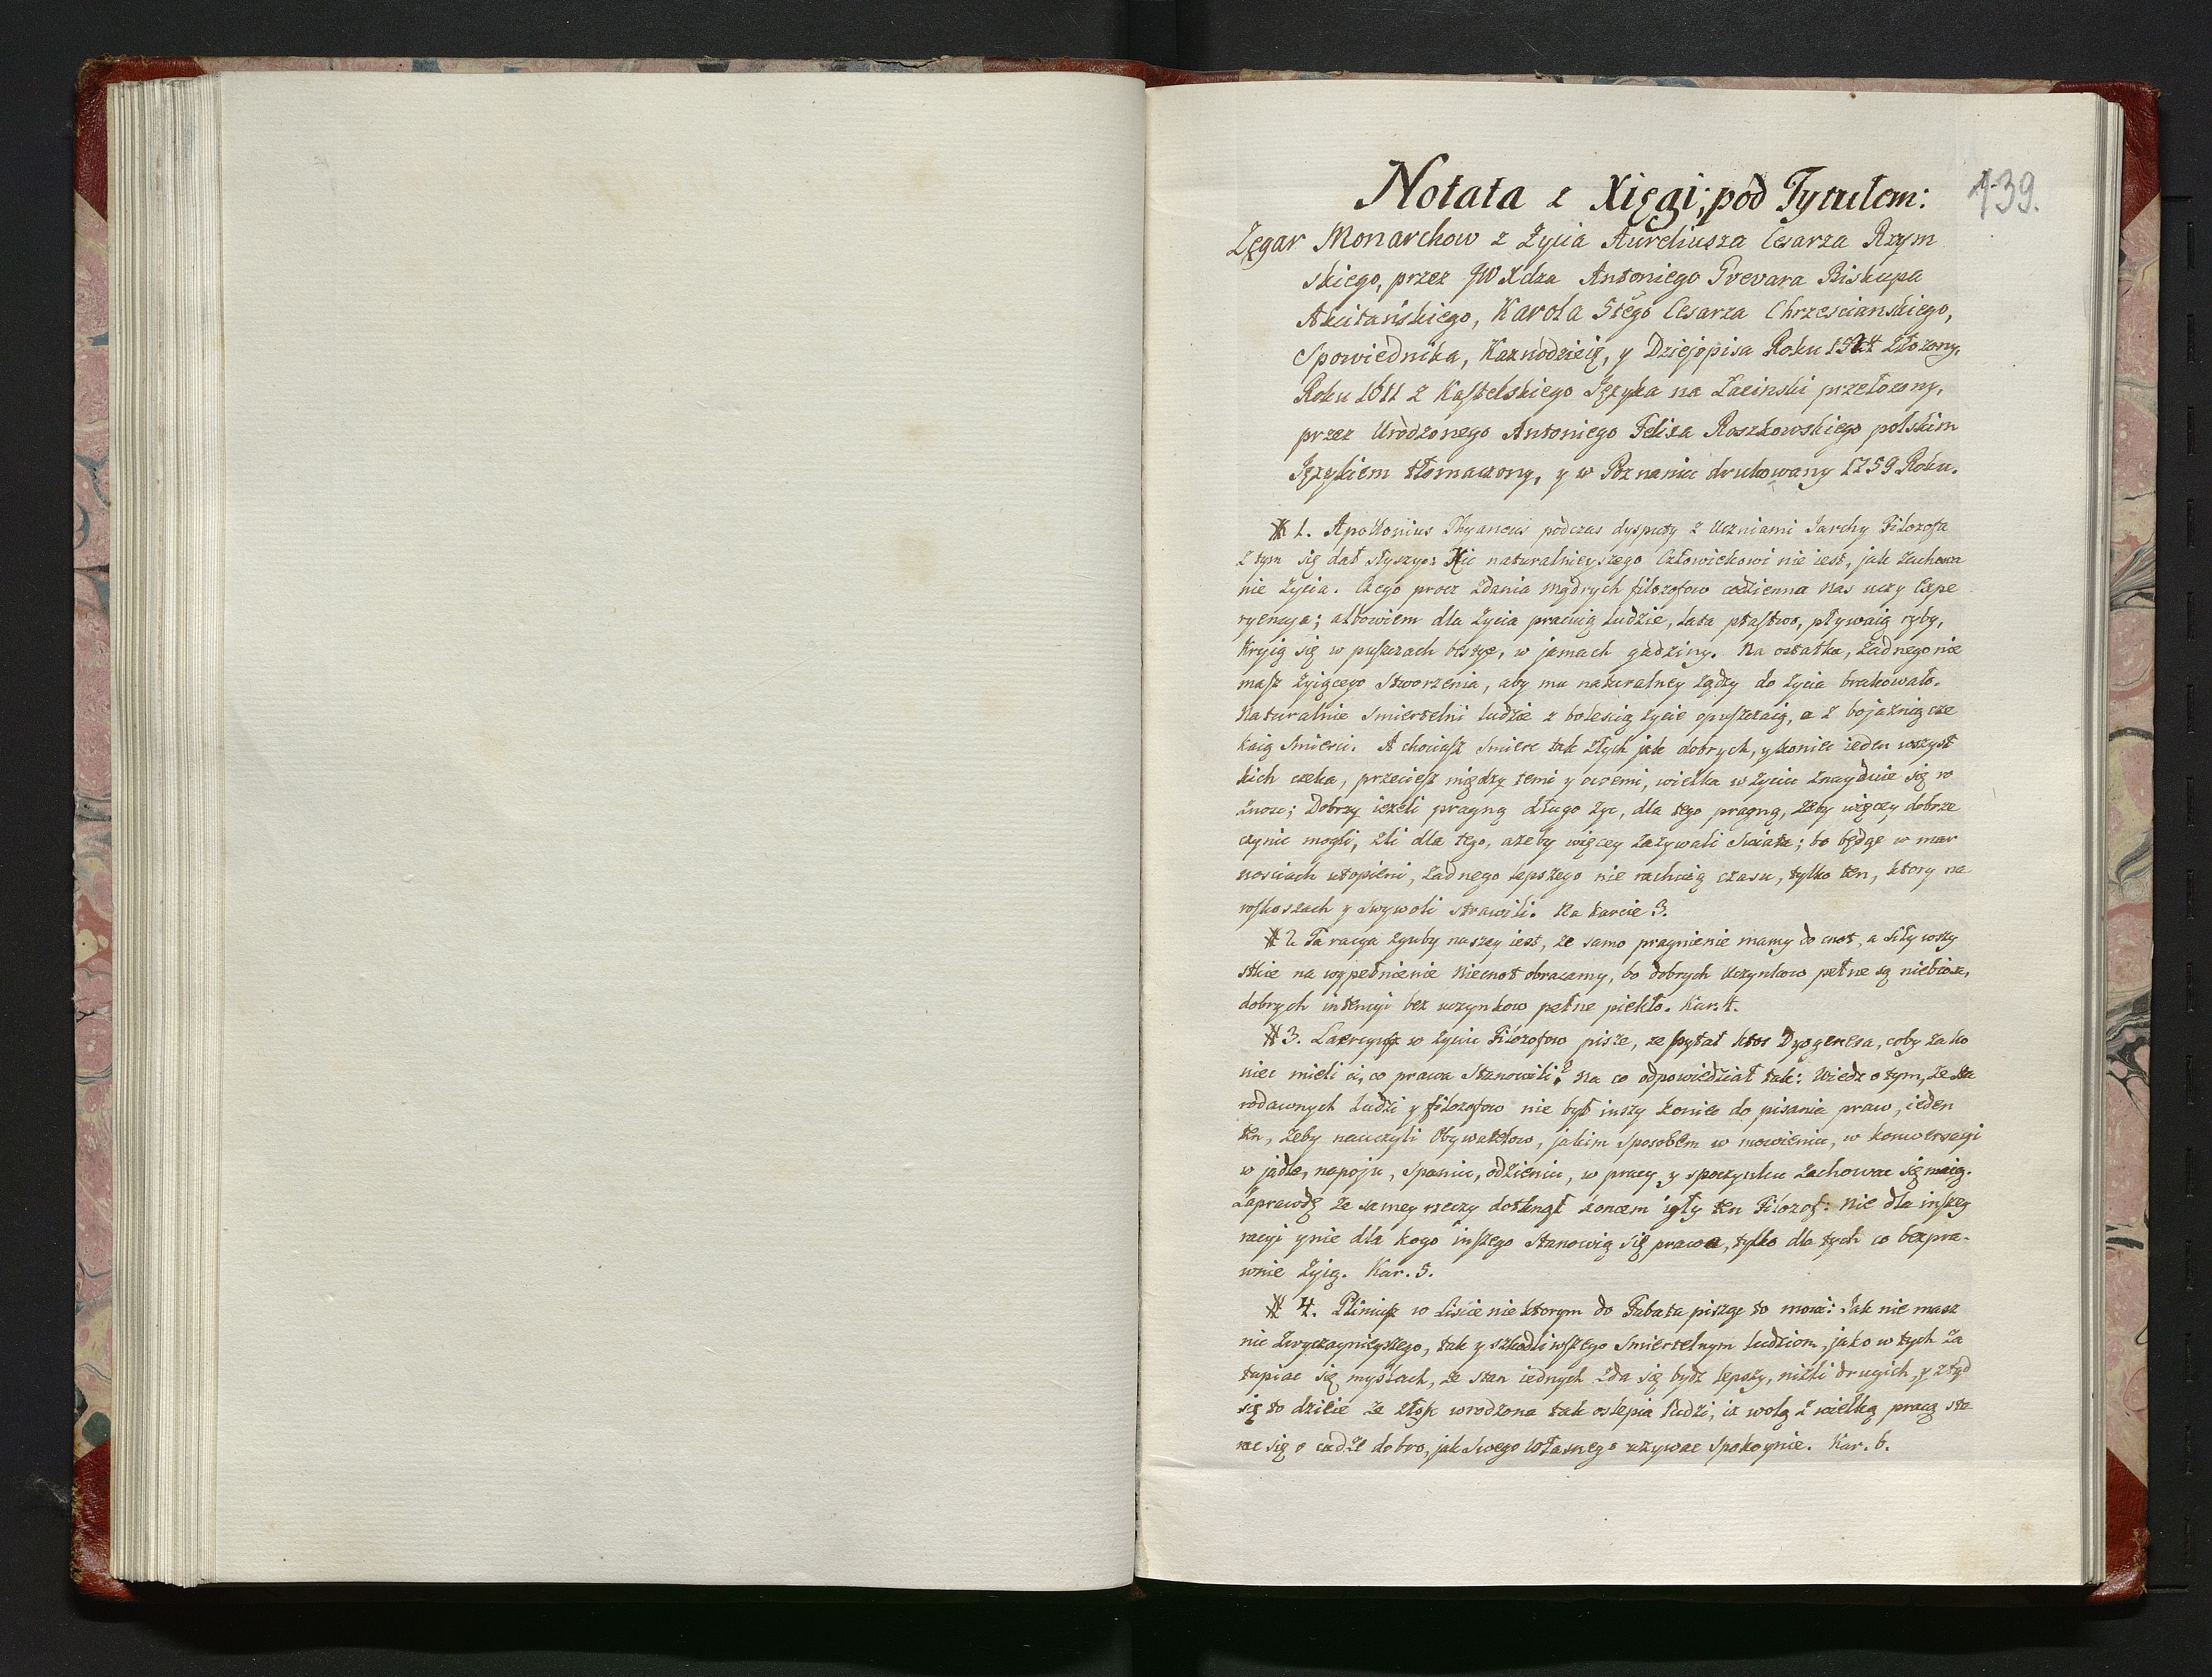 Notata z Xięgi; pod Tytułem:
139.
Zegar Monarchow z Życia Aureliusza Cesarza Rzym
skiego, przez JW Xdza Antoniego Gvevara Biskupa
Akcitańskiego, Karola 5tego Cesarza Chrzescianskiego,
Spowiednika, Kaznodzieię, y Dziejopisa Roku 1524 złozony.
Roku 1611 z Kastelskiego Ięzyka na Łacinski przełozony,
przez Urodzonego Antoniego Felixa Roszkowskiego polskim
Ięzykiem tłomaczony, y w Poznaniu drukowany 1759 Roku.
# 1. Apollonius Thyaneus podczas dysputy z Uczniami Jarchy Filozofa
z tym się dał słyszyc: Nic naturalnieyszego Człowiekowi nie iest, jak zachowa
nie życia. Czego procz zdania mądrych filozofow codzienna nas uczy Expe
ryencya; albowiem dla życia pracuią ludzie, lata ptastwo, pływaią ryby,
kryią się w puszczach bestye, w jamach gadziny. Na ostatku, żadnego nie
masz żyiącego stworzenia, aby mu naturalney żądzy do życia brakowało.
Naturalnie smiertelni ludzie z bolescią życie opuszczaią, a z bojaznią cze
kaią smierci. A chociasz smierc tak złych jak dobrych, y koniec ieden wszyst
kich czeka, przeciesz między temi y owemi, wielka w życiu znayduie się ro
żnosc; Dobrzy ieżeli pragną długo życ, dla tego pragną, żeby więcey dobrze
czynic mogli, zli dla tego, ażeby więcey zażywali swiata; bo będąc w mar
nosciach utopieni, żadnego lepszego nie rachuią czasu, tylko ten, ktory na
roskoszach y swywoli strawili. Na karcie 3.
# 2. Ta racya zguby naszey iest, że samo pragnienie mamy do cnot, a siły wszy
stkie na wypełnienie niecnot obracamy, bo dobrych uczynkow pełne są niebiosa,
dobrych intencyi bez uczynkow pełne piekło. Kar. 4.
# 3. Laercyusz w życiu Filozofow pisze, ze spytał ktos Dyogenesa, coby za ko
niec mieli ci, co prawa stanowili? Na co odpowiedział tak: Wiedz o tym, że sta
rodawnych ludzi y filozofow nie był inszy koniec do pisania praw, ieden
ten, żeby nauczyli Obywatelow, jakim sposobem w mowieniu, w konwersacyi
w jadle, napoju, spaniu, odzieniu, w pracy y spoczynku zachowac się maią.
Zaprawdę że samey rzeczy dotknął koncem igły ten Filozof: nie dla inszey
racyi y nie dla kogo inszego stanowią się prawa, tylko dla tych co bezpra-
wnie żyią. Kar. 5.
# 4. Pliniusz w liscie niektorym do Fabata pisząc to mowi: Jak nie masz
nic zwyczaynieyszego, tak y szkodliwszego smiertelnym ludziom, jako w tych za
tapiac się myslach, że stan iednych zda się bydz lepszy, niżli drugich, y ztąd
się to dzieie że złosc wrodzona tak oslepia ludzi, iz wolą z wielką pracą sta
rac się o cudze dobro, jak swego własnego używac spokoynie. Kar. 6.